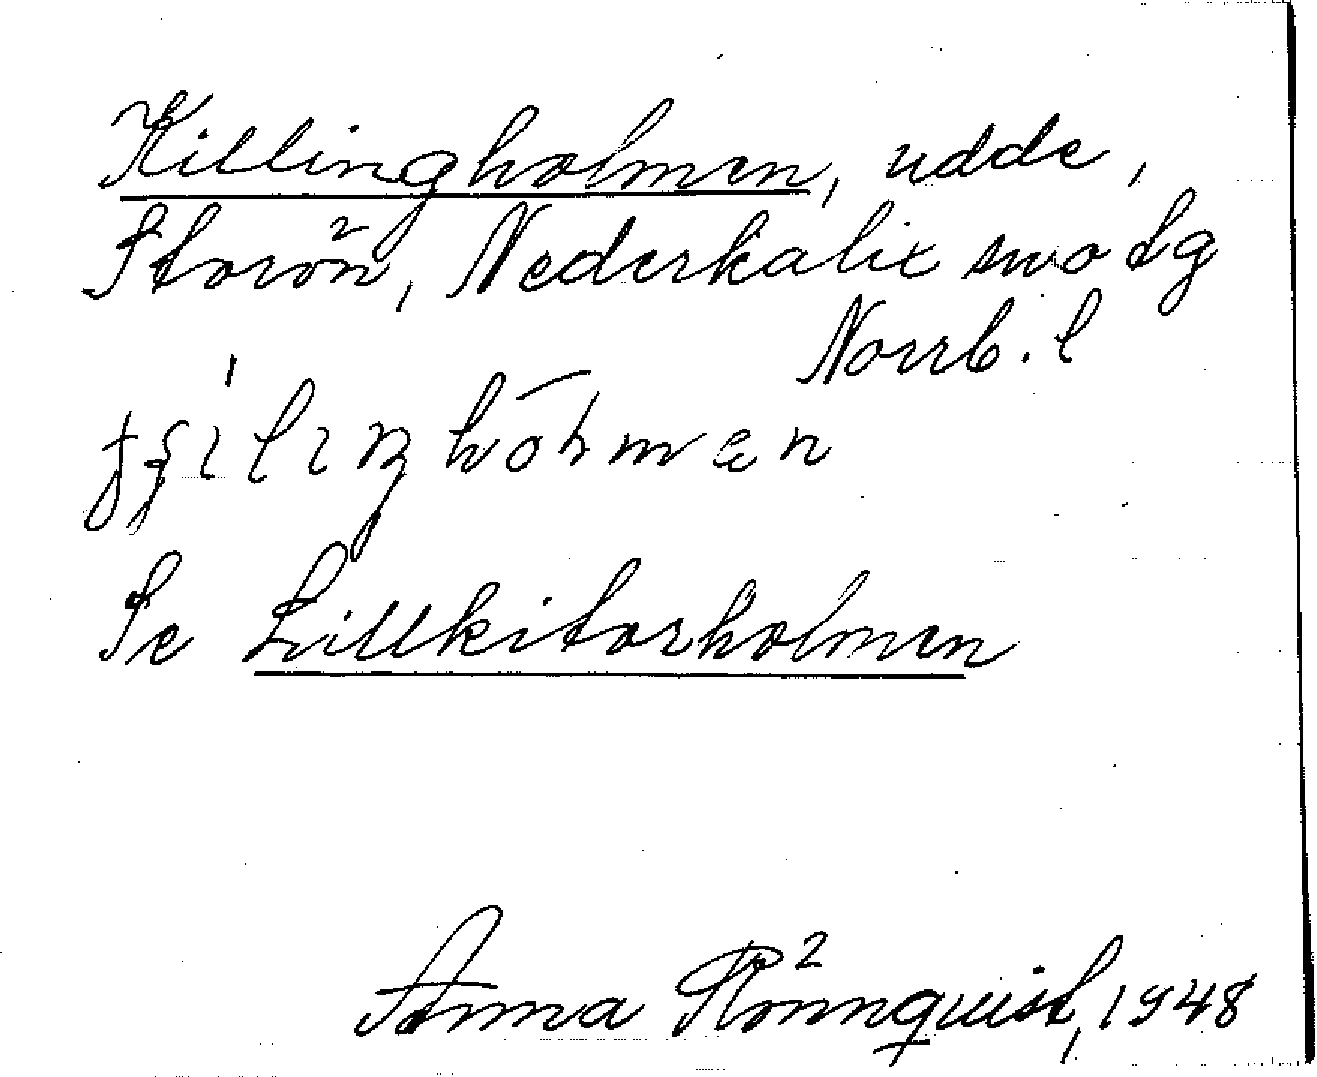 Killingholmen, udde,
Storön, Nederkalix sn o tg
Norrb. l
Se Lillkitorholmen
Anna Rönnqvist, 1948